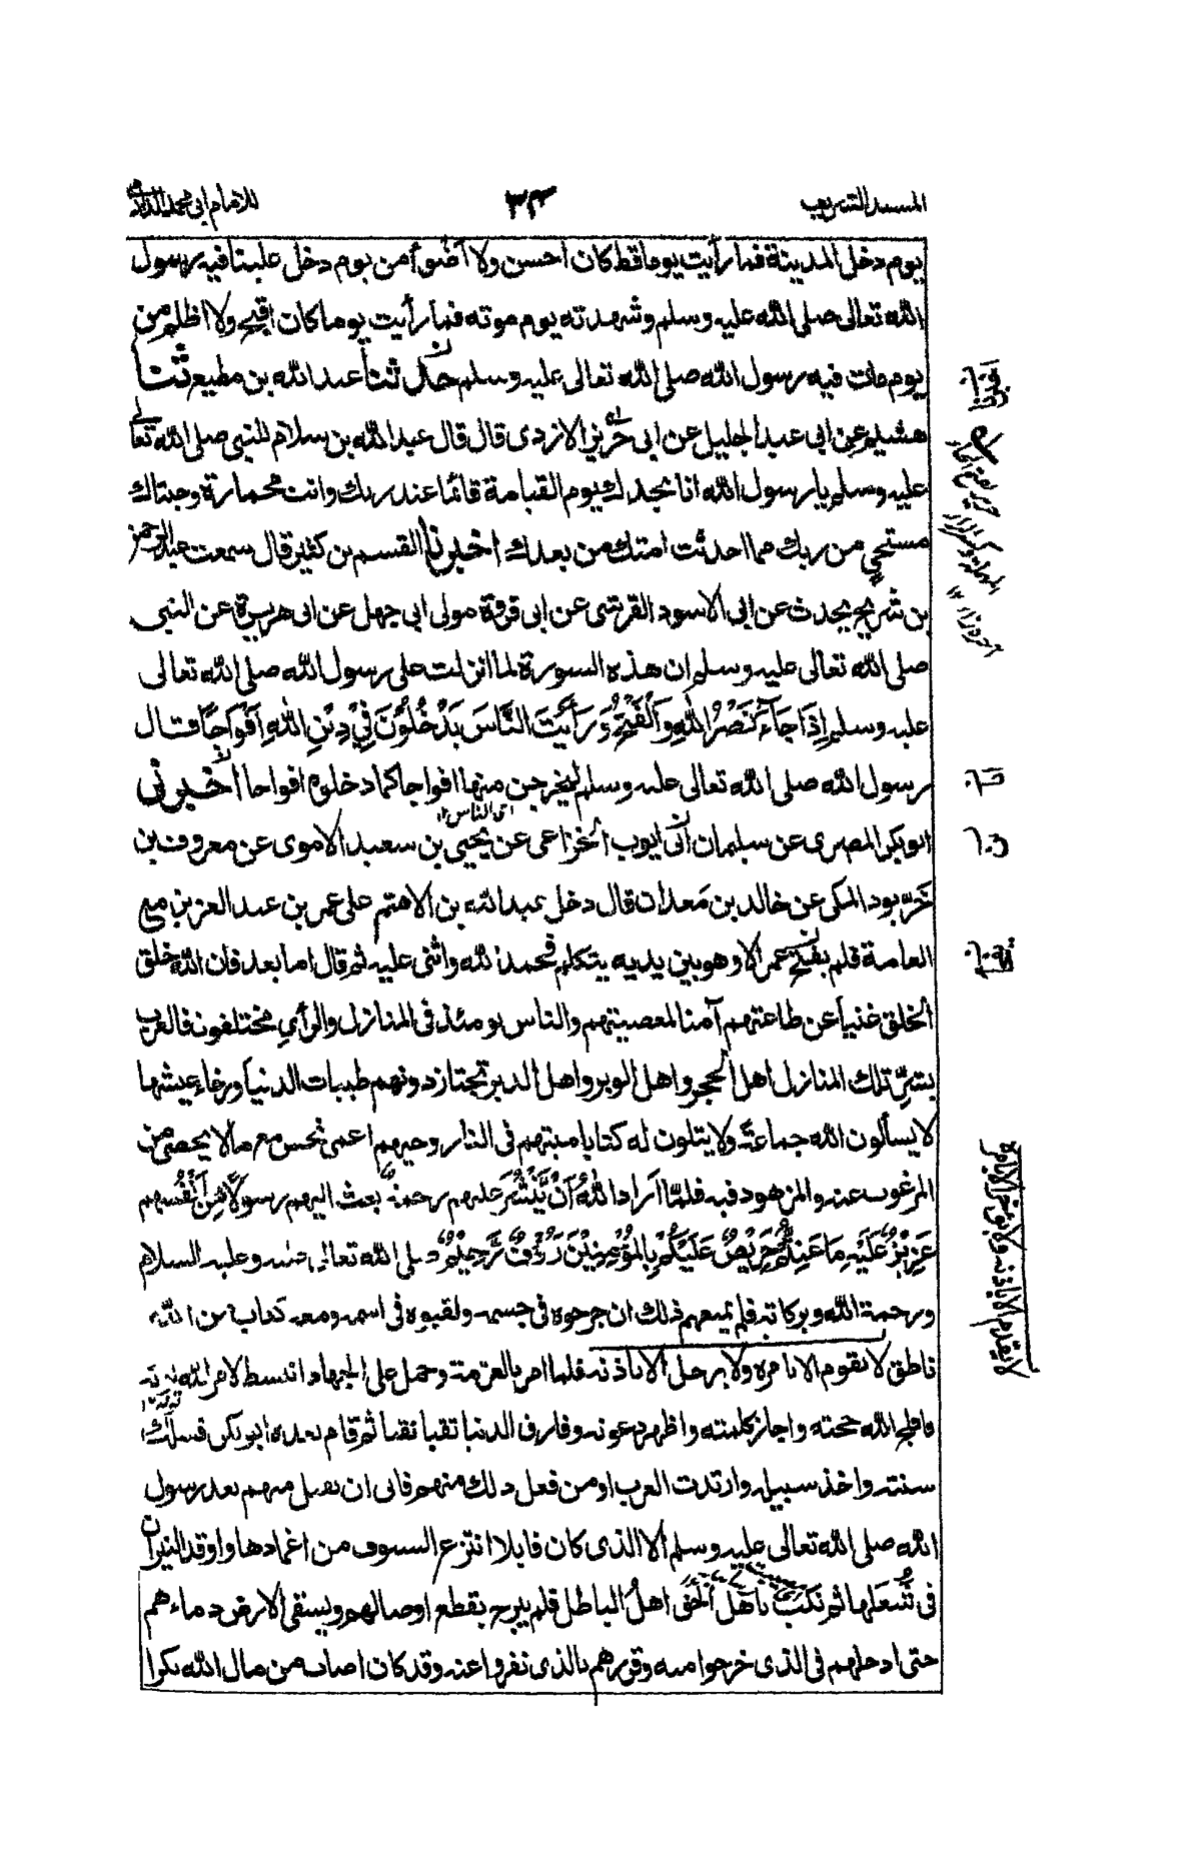 المسند الشريف
٣٤
للامام ابى محمد الدارمى
يوم دخل المدينة فما رأيت يوما قط كان احسن ولا أضوأ من يوم دخل علينا فيه رسول
الله تعالى صلى الله عليه وسلم وشهدته يوم موته فما رأيت يوما كان اقبح ولا اظلم من
يوم مات فيه رسول الله صلى الله تعالى عليه وسلم حدثنا عبد الله بن مطيع ثنا
هشيم عن ابى عبد الجليل عن ابى حريز الازدى قال قال عبد الله بن سلام للنبى صلى الله تعالى
عليه وسلم يا رسول الله انا نجدك يوم القيامة قائما عند ربك وانت محمارة وجنتاك
مستحى من ربك مما احدثت امتك من بعدك اخبرنا القسم بن كثير قال سمعت عبد الرحمن
بن شريح يحدث عن ابى الاسود القرشى عن ابى قروة مولى ابى جهل عن ابى هريرة عن النبى
صلى الله تعالى عليه وسلم ان هذه السورة لما انزلت على رسول الله صلى الله تعالى
عليه وسلم إِذَا جَآءَ نَصْرُ اللّٰهِ وَالْفَتْحُ وَرَأَيْتَ النَّاسَ يَدْخُلُوْنَ فِيْ دِيْنِ اللّٰهِ اَفْوَاجًا فقال
رسول الله صلى الله تعالى عليه وسلم ليخرجن منها افواجا كما دخلوه افواجا اخبرنى
اى الناس ١٢
ابوبكر المصرى عن سليمان ابى ايوب الخزاعى عن يحيى بن سعيد الاموى عن معروف بن
خَرَّبوذ المكى عن خالد بن مَعدان قال دخل عبد الله بن الاهتم على عمر بن عبد العزيز مع
العامة فلم يفجَ عمر الا وهو بين يديه يتكلم فحمد الله واثنى عليه ثم قال اما بعد فان الله خلق
الخلق غنيا عن طاعتهم آمنا لمعصيتهم والناس يومئذ فى المنازل والرأي مختلفون فالعرب
بشرِّ تلك المنازل اهل الحجر واهل الوبر واهل الدبر تجتاز دونهم طيبات الدنيا ورخاء عيشها
لا يسألون الله جماعةً ولا يتلون له كتابا ميتهم فى النار وحيهم اعمى نجس مع مالا يحصى من
المرغوب عنه والمزهود فيه فلمّا اَرادَ اللهُ اَنْ يَّنْشُرَ عليهم رحمته بعث اليهم رسولاً مِّنْ اَنْفُسهم
عَزِيْزٌ عَلَيْهِ مَا عَنِتُّمْ حَرِيْصٌ عَلَيْكُمْ بِالْمُؤْمِنِيْنَ رَءُوْفٌ رَّحِيْمٌ صلى الله تعالى عليه وعليه السلام
ورحمة الله وبركاته فلم يمنعهم ذلك ان جرحوه فى جسمه ولقبوه فى اسمه ومعه كتاب من الله
ناطق لا يقوم الا بامره ولا يرحل الا باذنه فلما امر بالعزمة وحمل على الجهاد انبسط لامر الله
فافلج الله حجته واجاز كلمته واظهر دعوته وفارق الدنيا تقيا نقيا ثم قام بعده ابوبكر فسلك
سنته واخذ سبيله وارتدت العرب او من فعل ذلك منهم فابى ان يقبل منهم بعد رسول
الله صلى الله تعالى عليه وسلم الا الذى كان قابلا انتزع السيوف من اغمادها واوقد النيران
فى شُعَلها ثم نكب باهل الحق اهلَ الباطل فلم يبرح يقطع اوصالهم ويسقى الارض دماءهم
حتى ادخلهم فى الذى خرجوا منه وقررهم بالذى نفروا عنه وقد كان اصاب من مال الله بكرا